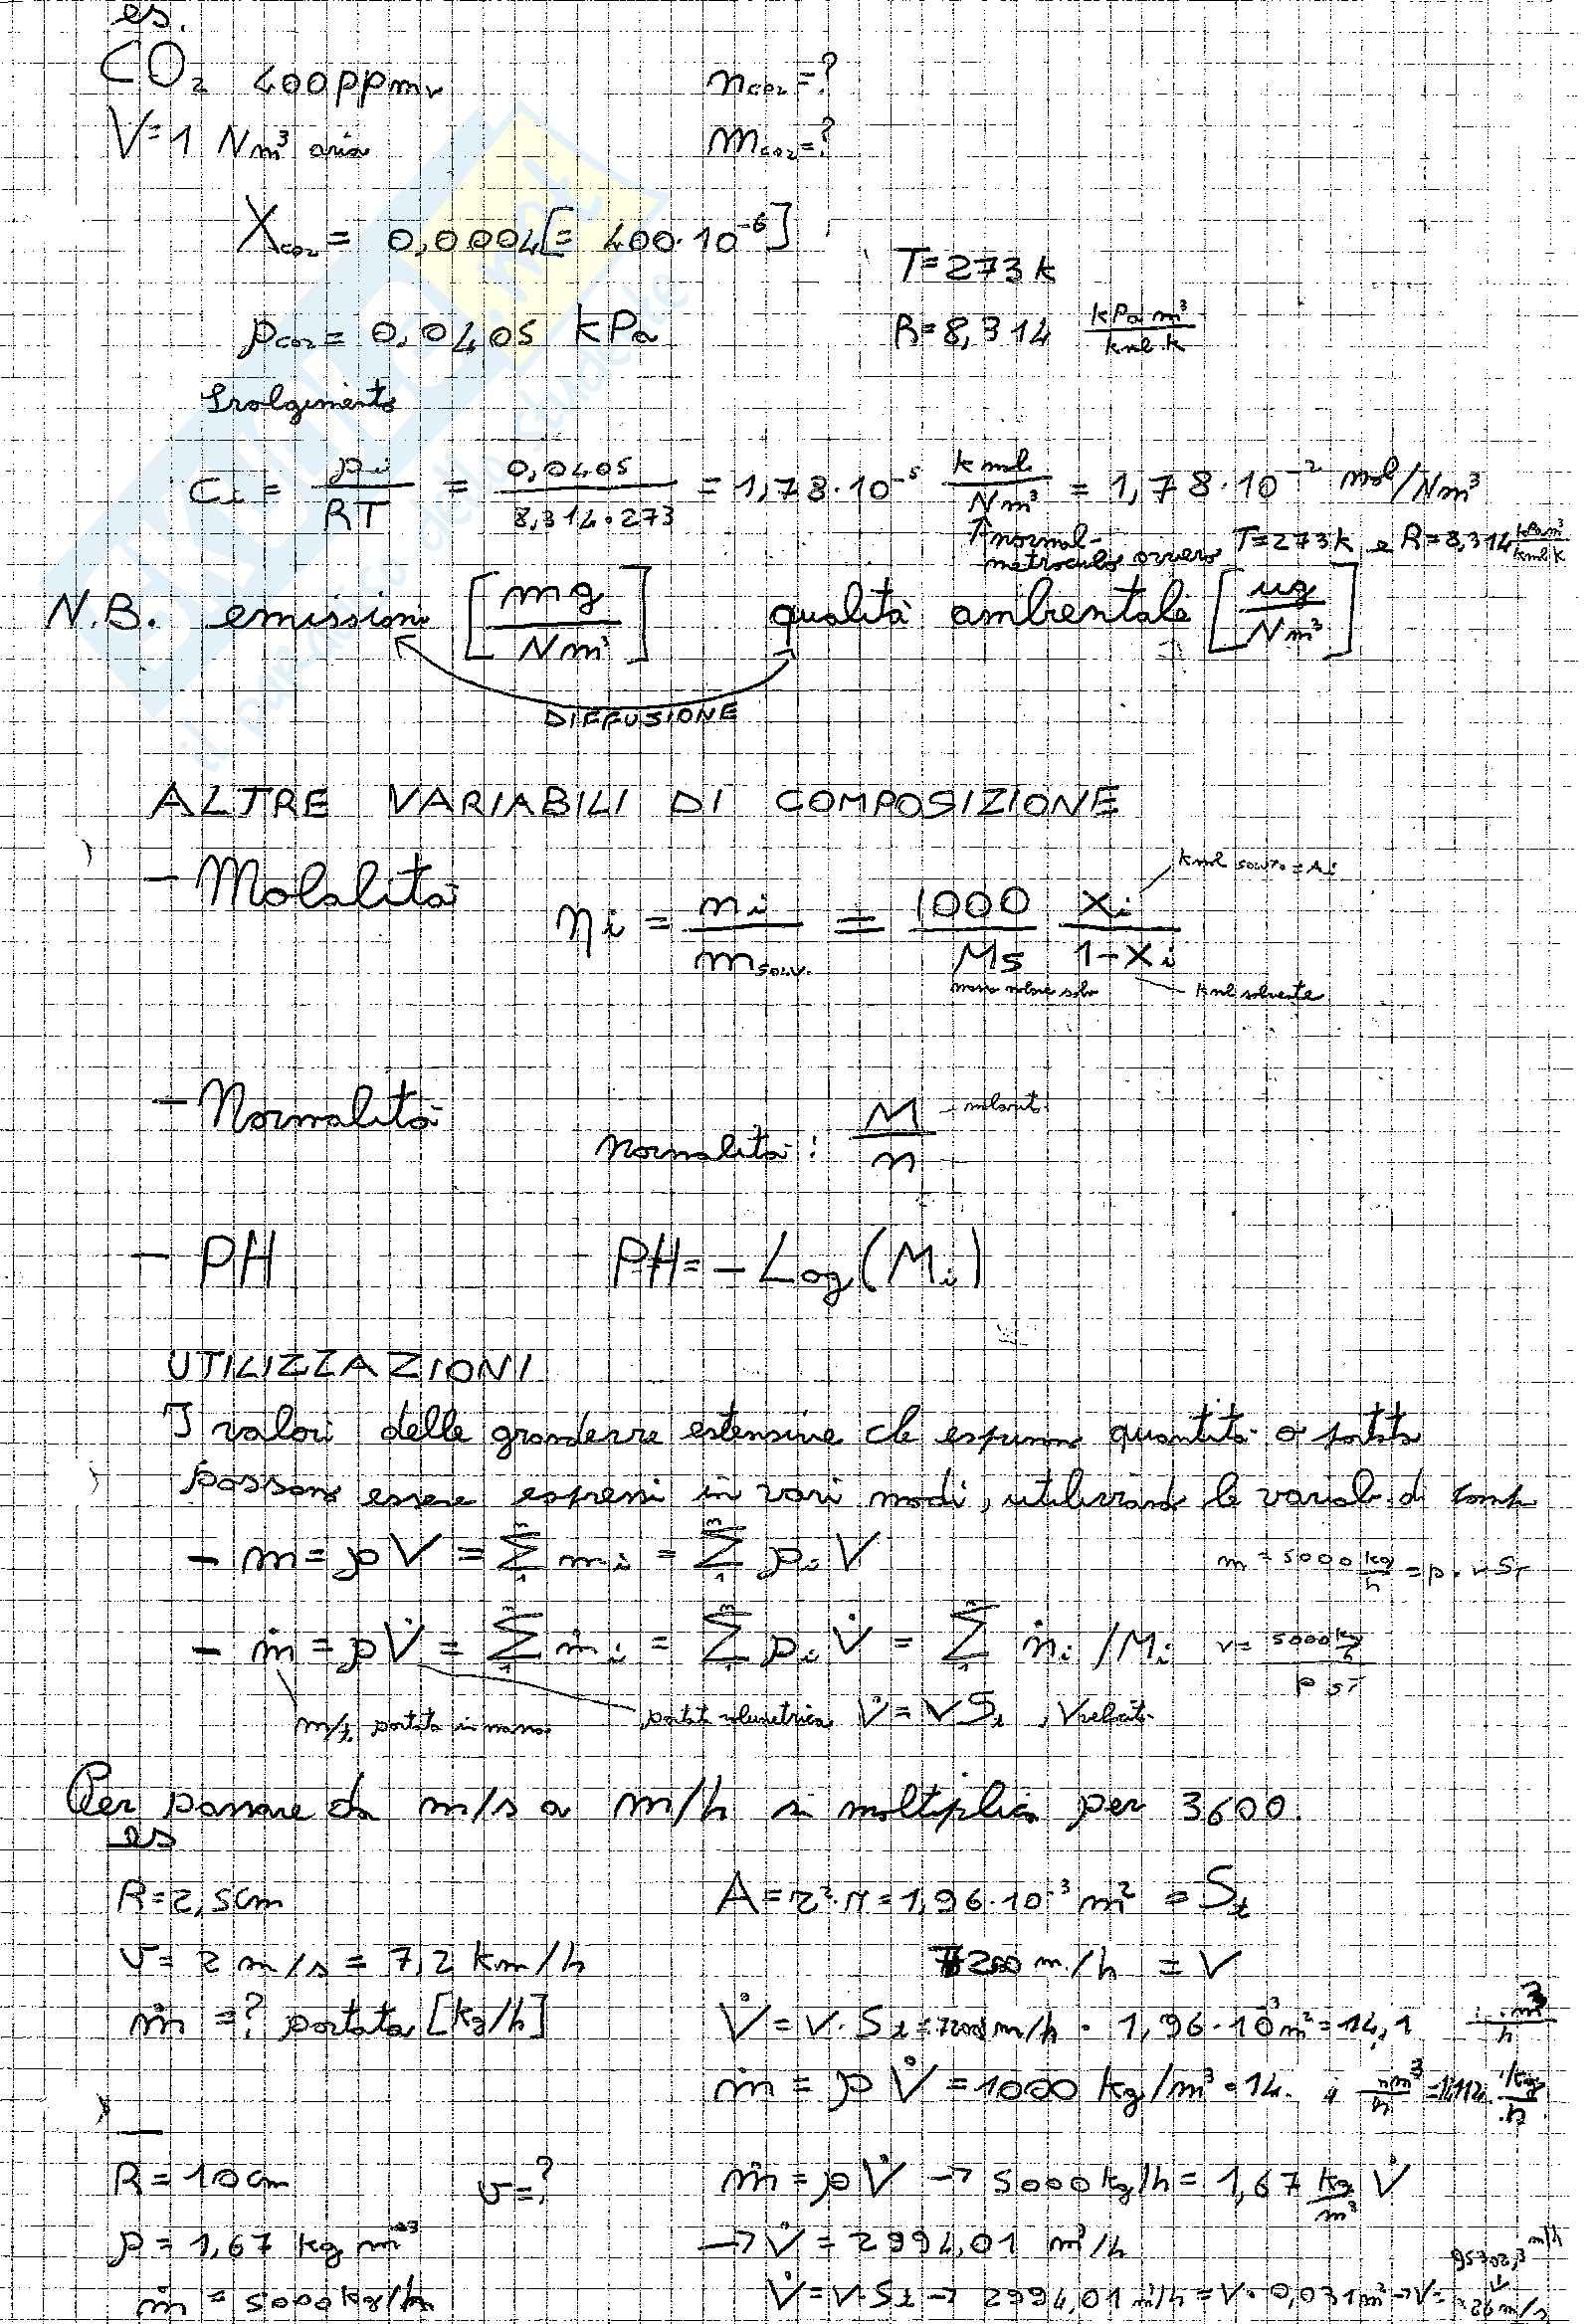 es.
CO₂ 400 ppmv n_CO2 = ?
V = 1 Nm³ aria m_CO2 = ?
X_CO2 = 0,0004 [= 400·10⁻⁶]
T = 273 k
p_CO2 = 0,0405 kPa R = 8,314 kPa m³/kmol·k
Svolgimento
Ci = pi/RT = 0,0405/8,314·273 = 1,78·10⁻⁵ kmol/Nm³ = 1,78·10⁻² mol/Nm³
↑ normal-metrocubo ovvero T=273k e R=8,314 kPam³/kmol k
N.B. emissioni [mg/Nm³] qualità ambientale [ug/Nm³]
DIFFUSIONE
ALTRE VARIABILI DI COMPOSIZIONE
- Molalità ηi = ni/m solv. = 1000/Ms xi/1-xi
kmol soluto = Ai
massa molare solv kmol solvente
- Normalità normalità: M/n - molarità
- PH PH = - Log(Mi)
UTILIZZAZIONI
I valori delle grandezze estensive che esprimono quantità o portate
possono essere espressi in vari modi, utilizzando le variab. di comp
- m = ρV = Σ mi = Σ ρi V m = 5000 kg/h = ρ · v ST
- ṁ = ρV̇ = Σ ṁi = Σ ρi V̇ = Σ ṅi /Mi v = 5000 kg/h / ρ ST
portata in massa portata volumetrica V̇ = V St, V velocità
Per passare da m/s a m/h si moltiplica per 3600.
es
R = 2,5 cm A = r²·π = 1,96·10⁻³ m² = St
v = 2 m/s = 7,2 km/h 7200 m/h = V
ṁ = ? portata [kg/h] V̇ = V·St = 7200 m/h · 1,96·10⁻³ m² = 14,1 m³/h
ṁ = ρ V̇ = 1000 kg/m³ · 14. m³/h = 14112 kg/h
R = 10 cm v = ? ṁ = ρ V̇ → 5000 kg/h = 1,67 kg/m³ V̇
ρ = 1,67 kg m⁻³ → V̇ = 2994,01 m³/h
ṁ = 5000 kg/h V̇ = V·St → 2994,01 m³/h = V· 0,031 m² → V = 95702,3 m/h
↓ 26 m/s